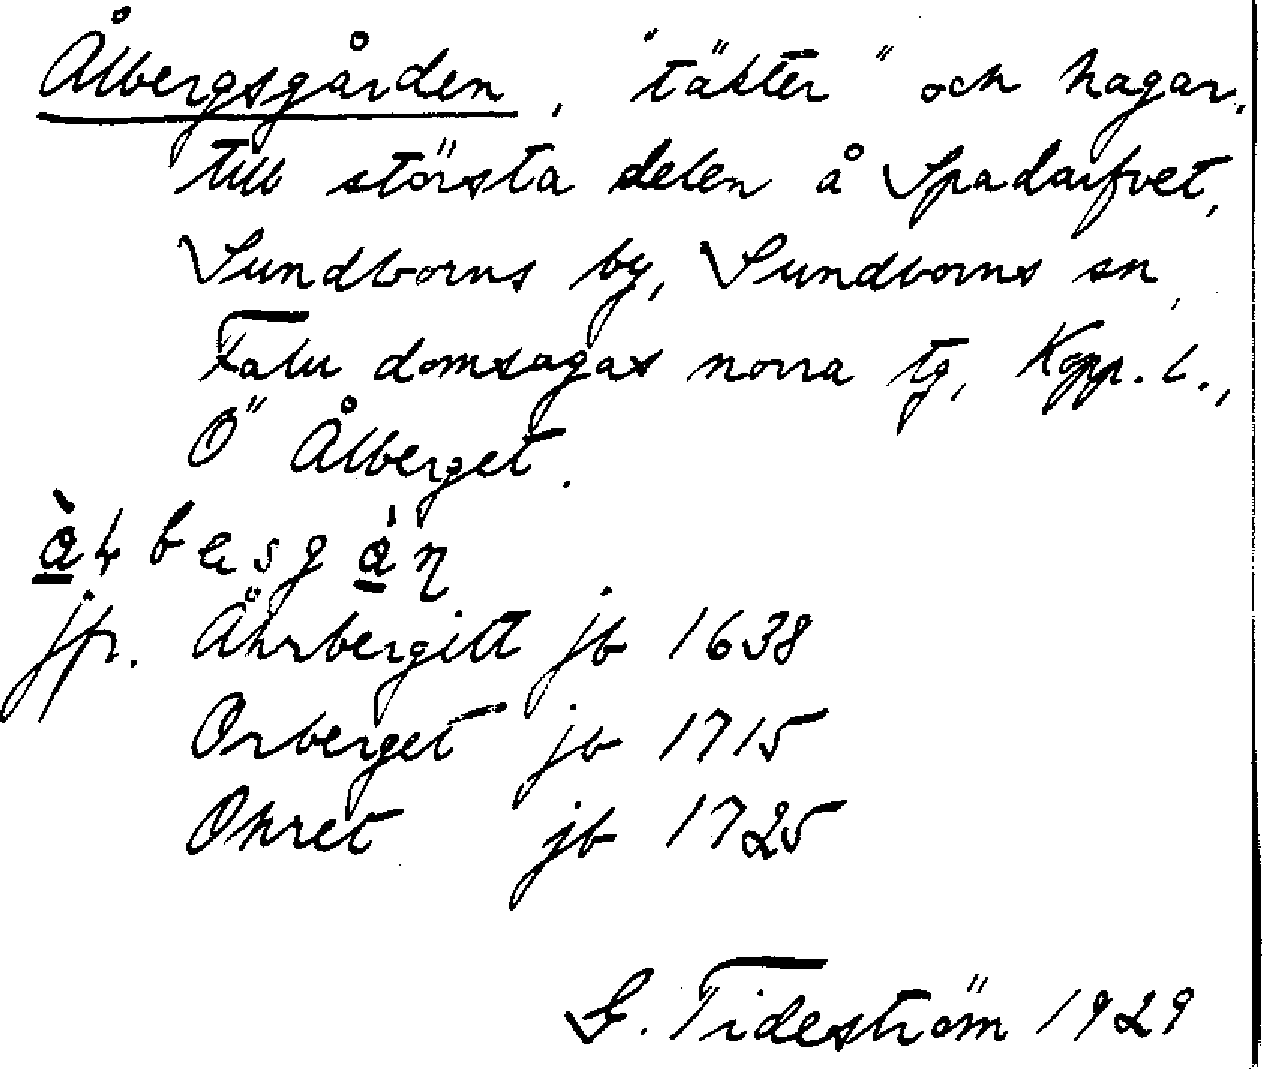 Ålbergsgården, "täkter" och hagar,
till största delen å Spadarfvet,
Sundborns by, Sundborns sn,
Falu domsagas norra tg, Kopp. l.,
Ö" Ålberget.
jfr. Åhrbergitt jb 1638
Orberget jb 1715
Ohret jb 1725
G. Tideström 1929